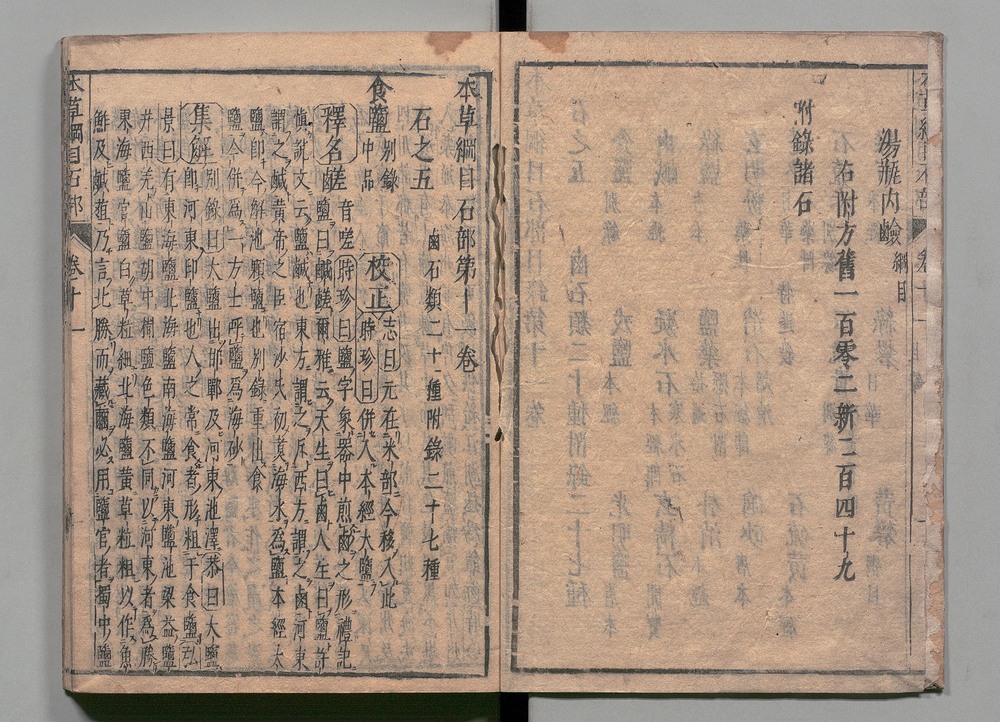 湯瓶內鹼 綱目
附錄諸石
右附方舊一百零二新二百四十九
本草綱目石部第十一卷
石之五 鹵石類二十種附錄二十七種
食鹽 別錄中品 校正 志曰元在米部今移入此時珍曰併入本經大鹽
釋名 鹺 音嵯 時珍曰鹽字象器中煎鹵之形禮記
鹽曰鹹鹺爾雅云天生曰鹵人生曰鹽許
慎說文云鹽鹹也東方謂之斥西方謂之鹵河東
謂之鹹黃帝之臣宿沙氏初煑海水為鹽本經大
鹽即今解池顆鹽也別錄重出食
鹽今併為一方士呼鹽為海砂
集解 別錄曰大鹽出邯鄲及河東池澤恭曰大鹽
即河東印鹽也人之常食者形粗于食鹽弘
景曰有東海鹽北海鹽南海鹽河東鹽池梁益鹽
井西羌山鹽胡中樹鹽色類不同以河東者為勝
東海鹽官鹽白草粒細北海鹽黃草粒粗以作魚
鮓及鹹菹乃言北勝而藏繭必用鹽官者蜀中鹽
本草綱目石部 卷十一